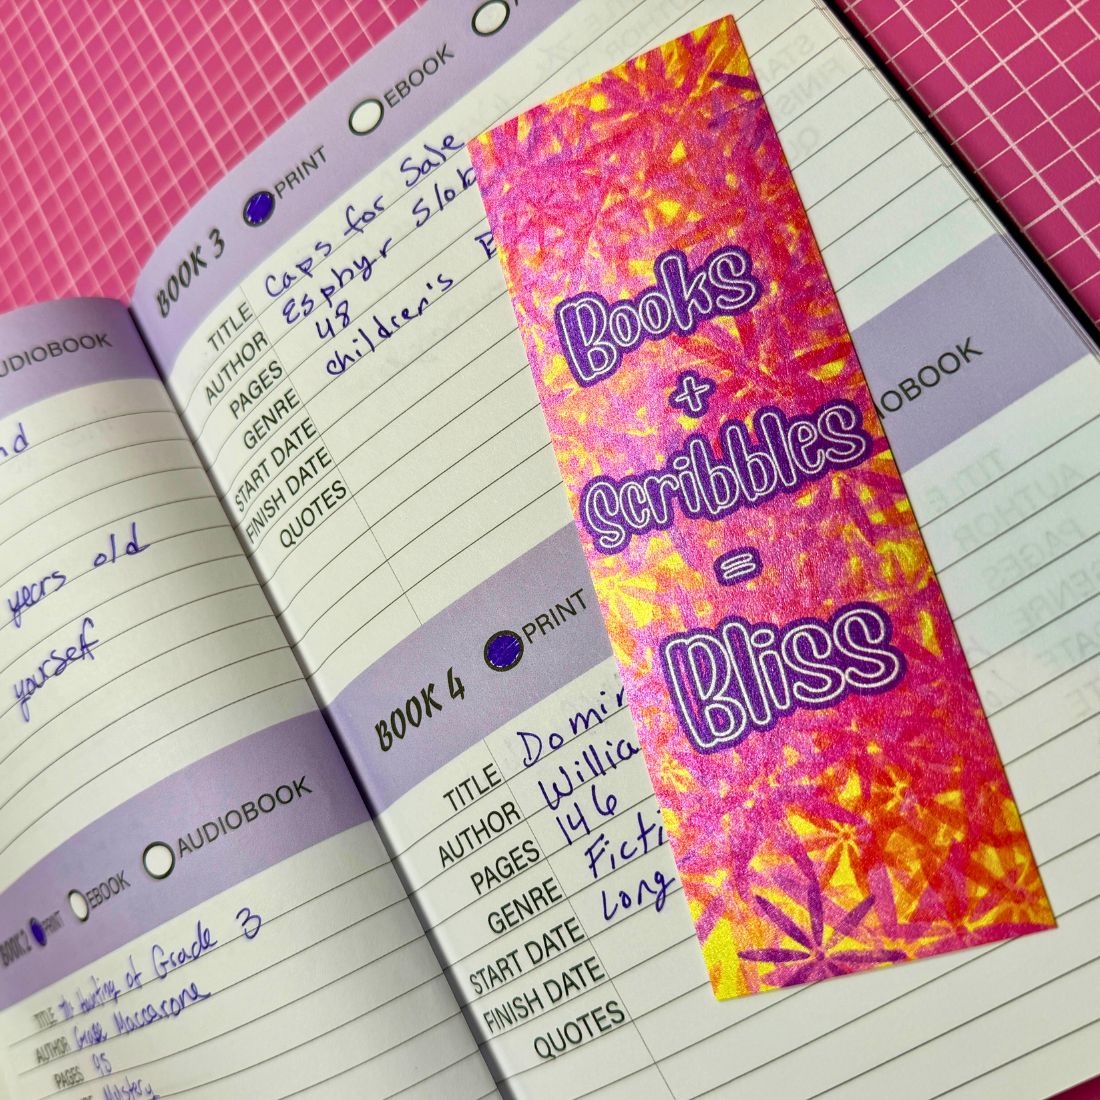 UDIOBOOK
nd
years old
yourself
BOOK 2 PRINT EBOOK AUDIOBOOK
TITLE Th Hunting of Grade 3
AUTHOR Grace Maccarone
PAGES 95
Mystery
BOOK 3 PRINT EBOOK
TITLE Caps for Sale
AUTHOR Esphyr Slob
PAGES 48
GENRE children's
START DATE
FINISH DATE
QUOTES
BOOK 4 PRINT
OBOOK
TITLE Domin
AUTHOR Willia
PAGES 146
GENRE Ficti
START DATE Long
FINISH DATE
QUOTES
Books
+
Scribbles
=
Bliss